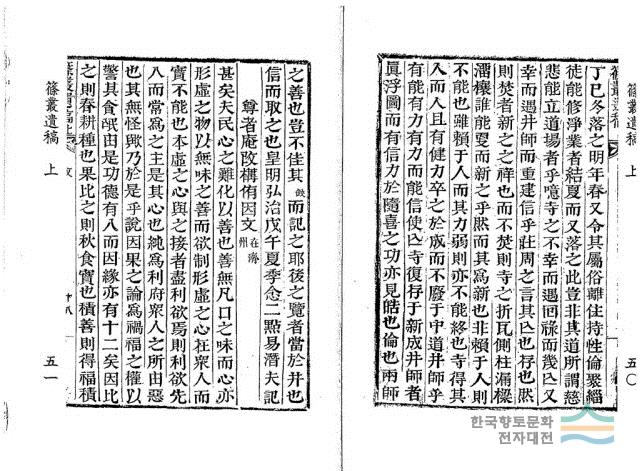 篠叢遺稿 上 五〇
篠叢遺稿
丁巳冬落之明年春又令其屬俗離住持性倫聚緇
徒能修淨業者結夏而又落之此豈非其道所謂慈
悲能立道場者乎噫寺之不幸而遇回祿而幾亾又
幸而遇井師而重建信乎莊周之言其亾也存也然
則焚者新之之祥也而不焚則寺之折瓦側柱漏樑
誰能而新之乎然而其爲新也非賴于人則
不能也雖賴于人而其力弱則亦不能終也寺得其
人而人且有健力卒之於成而不廢于中道井師乎
有能有力有力而能信使亾寺復存于新成井師者
眞浮圖而有信力於隨喜之功亦見皓也倫也兩師
之善也豈不佳其而記之耶後之覽者當於井也
信而取之也皇明弘治戊午夏季念二點易潛夫記
尊者庵改構侑因文 在海州
甚矣夫民心之難化以善也善無凡口之味而心亦
形虛之物以無味之善而欲制形虛之心在衆人而
實不能也本虛之心與之接者盡利欲焉則利欲先
入而常爲之主是其心也純爲利府衆人之所由惡
也其無怪乃於是乎說因果之論爲禍福之權以
警其貪氓由是功德有八而因緣亦有十二矣因比
之則春耕種也果比之則秋食實也積善則得福積
篠叢遺稿 上 五一
한국향토문화
전자대전